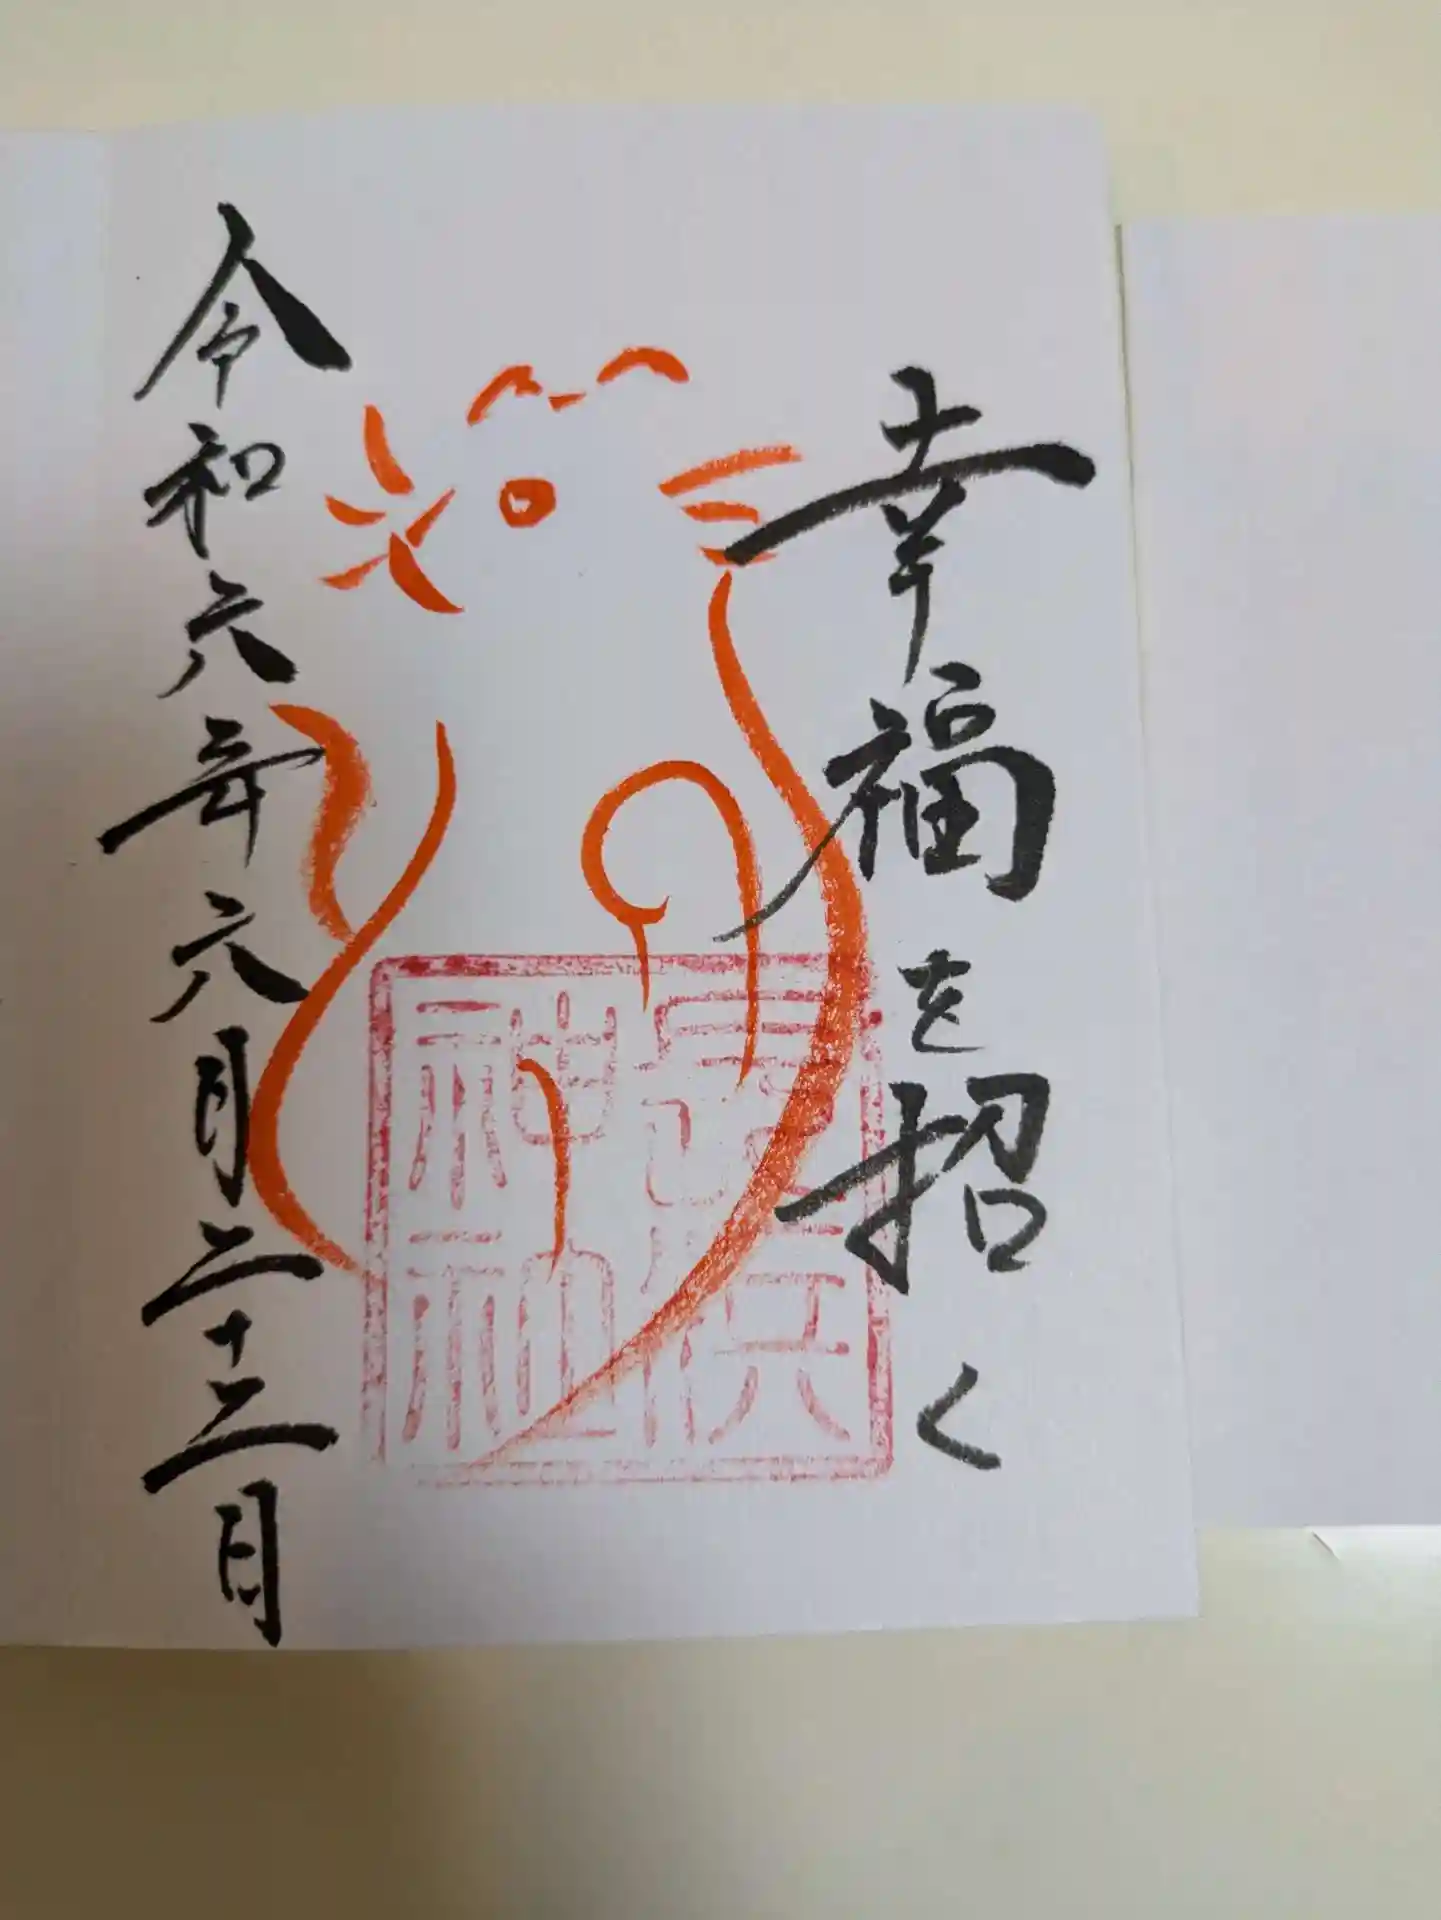 幸福を招く
令和六年六月二十二日